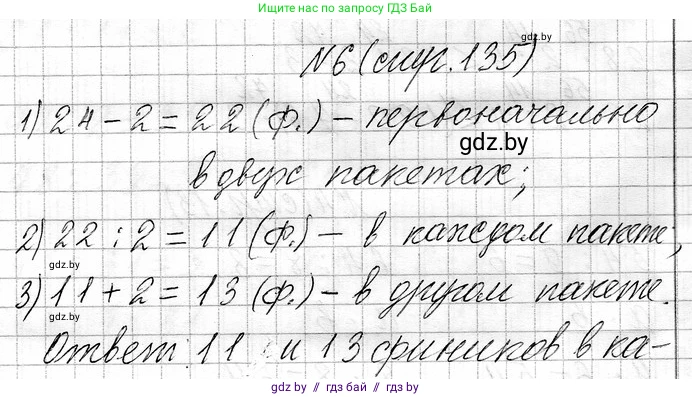 Ищите нас по запросу ГДЗ Бай
gdz.by
N6 (стр. 135)
1) 24 - 2 = 22 (ф.) - первоначально
gdz.by
в двух пакетах;
2) 22 : 2 = 11 (ф.) - в каждом пакете;
gdz.by
3) 11 + 2 = 13 (ф.) - в другом пакете.
gdz.by
Ответ: 11 и 13 фиников в ка-
gdz.by // гдз бай // gdz.by